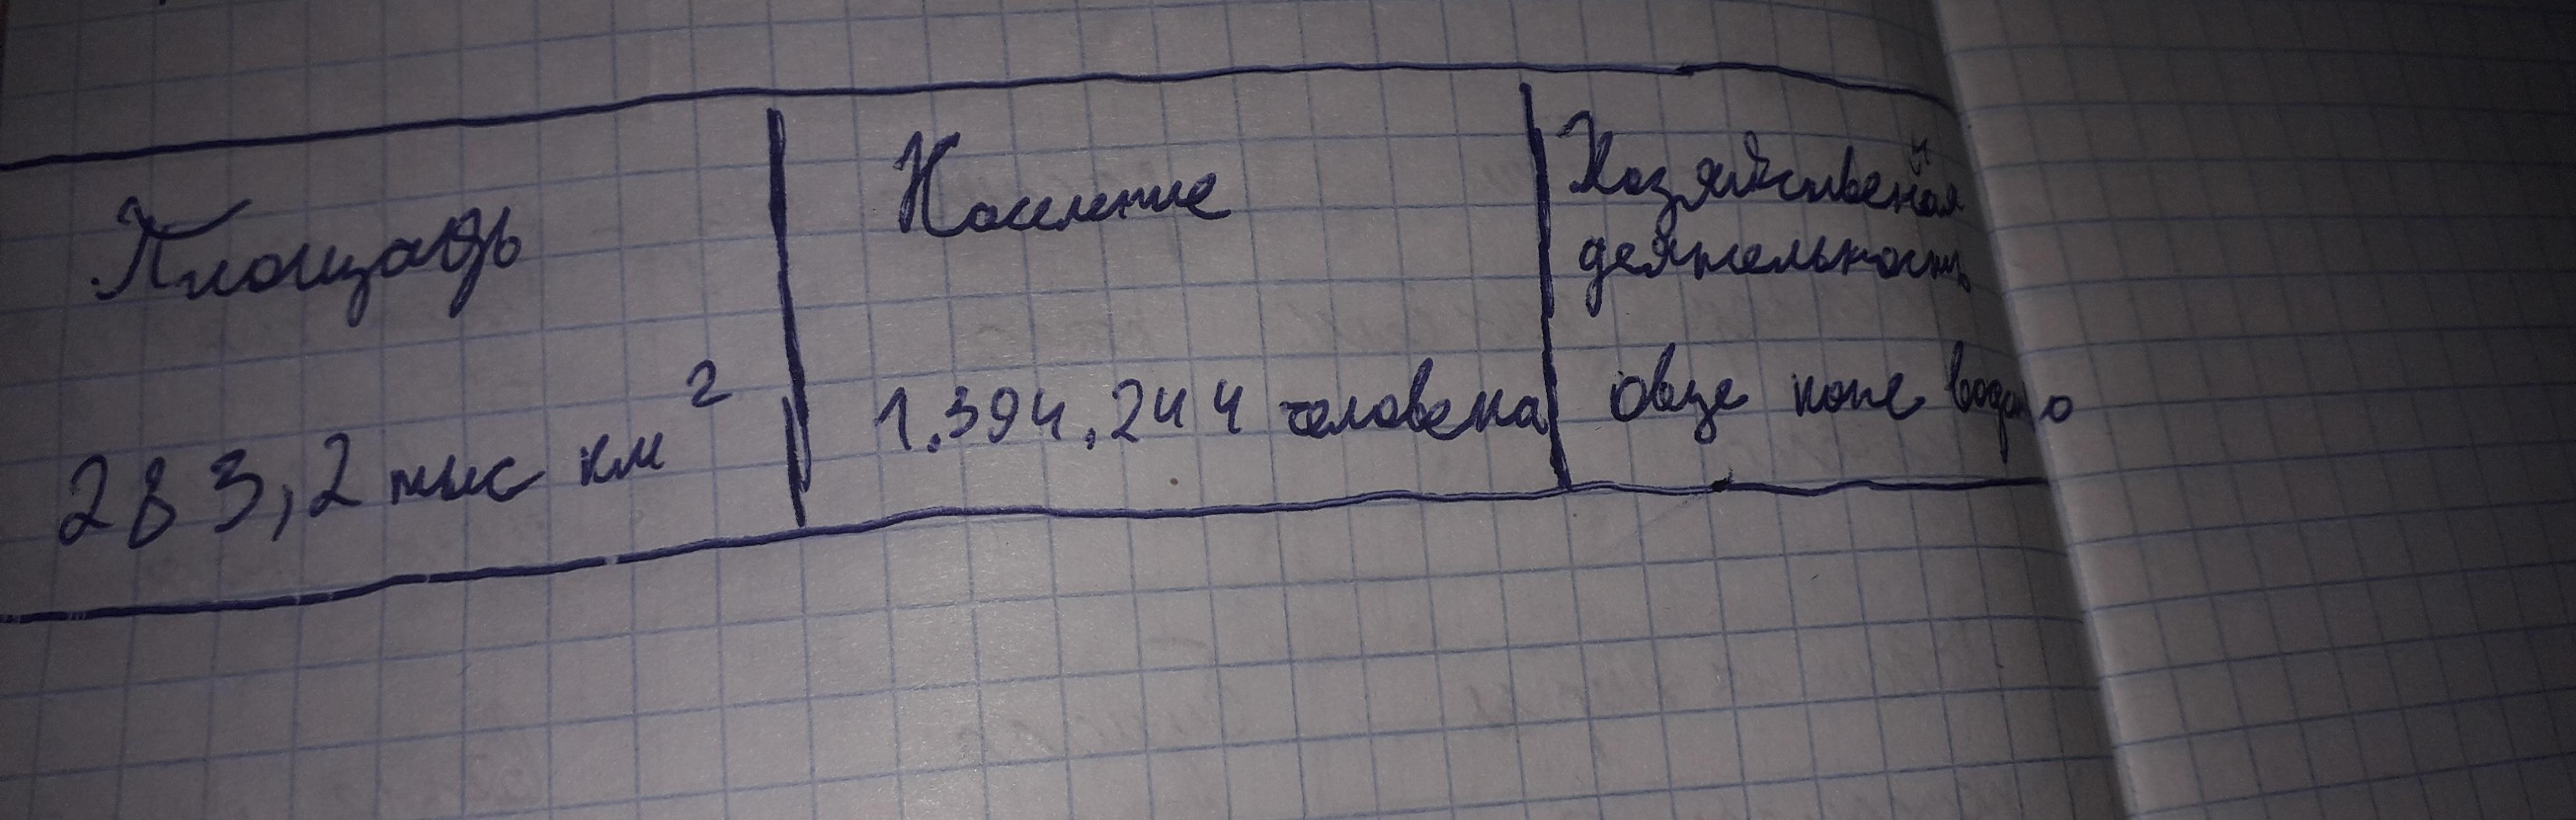 Площадь
Население
Хозяйственая
деятельность
283,2 тыс км²
1.394.244 человека
овце коне водство